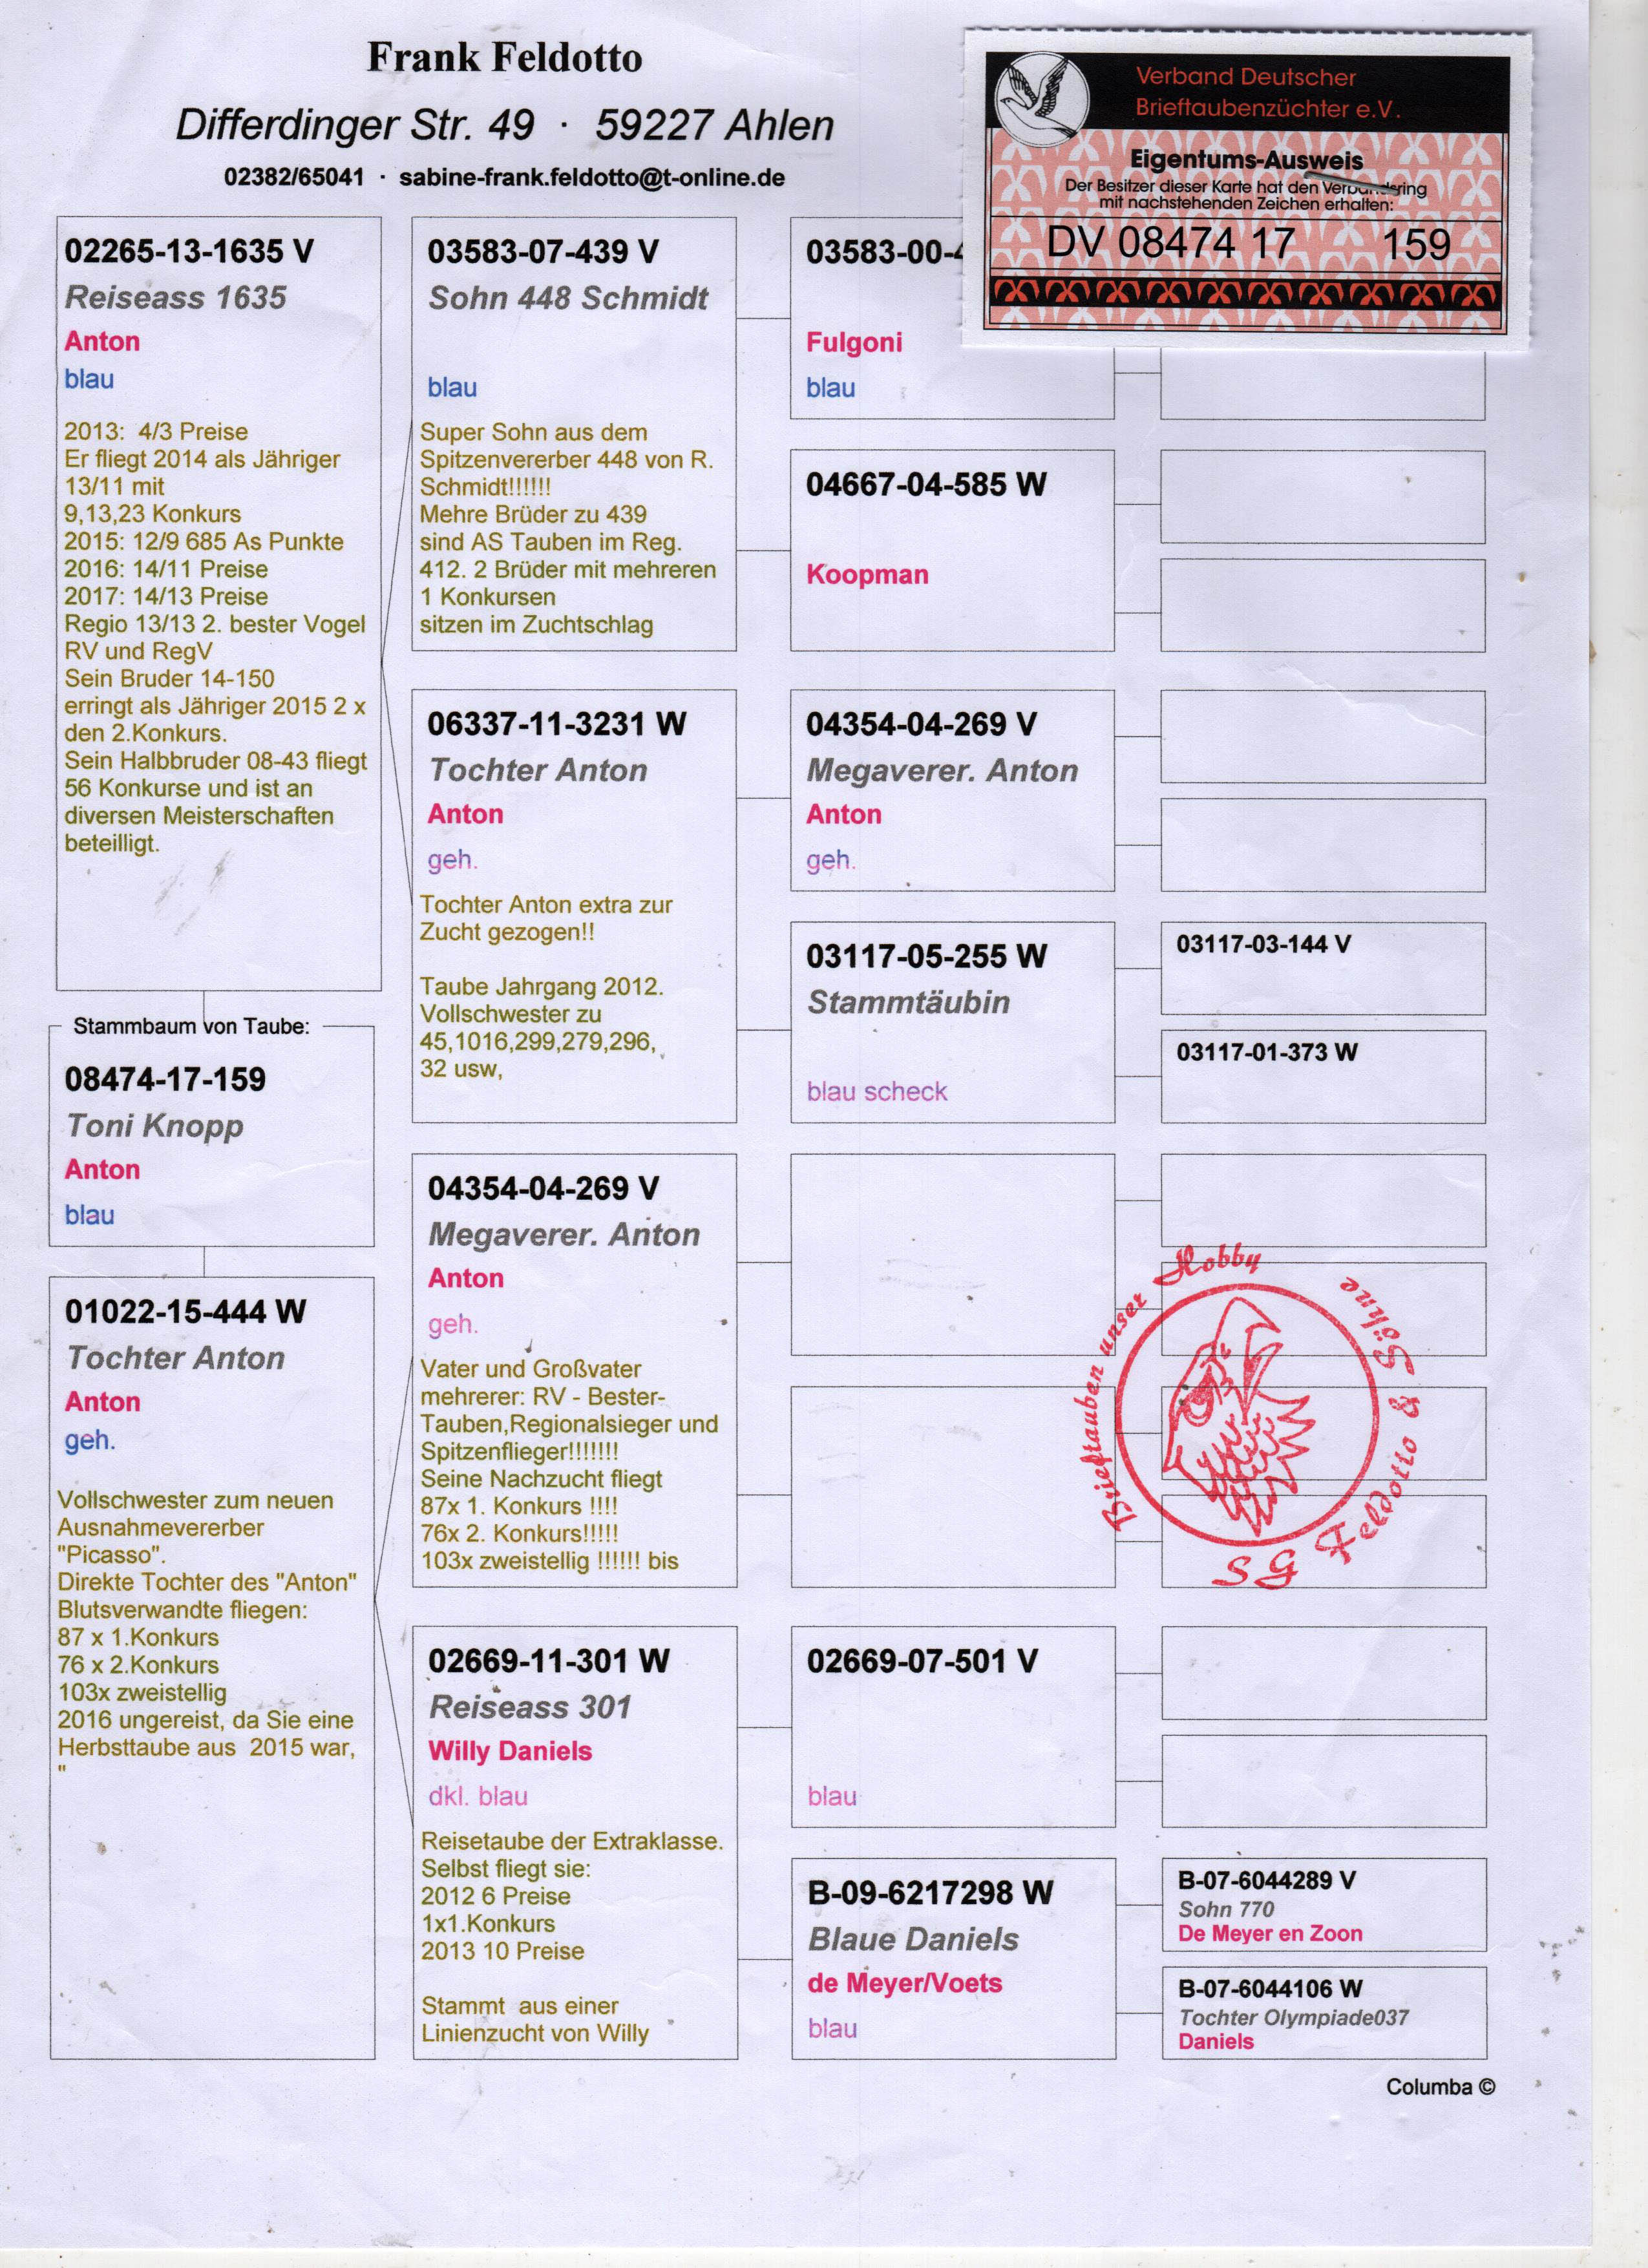 Frank Feldotto
Differdinger Str. 49 · 59227 Ahlen
02382/65041 · sabine-frank.feldotto@t-online.de
Verband Deutscher
Brieftaubenzüchter e.V.
Eigentums-Ausweis
Der Besitzer dieser Karte hat den
mit nachstehenden Zeichen erhalten:
DV 08474 17 159
02265-13-1635 V
Reiseass 1635
Anton
blau
2013: 4/3 Preise
Er fliegt 2014 als Jähriger
13/11 mit
9,13,23 Konkurs
2015: 12/9 685 As Punkte
2016: 14/11 Preise
2017: 14/13 Preise
Regio 13/13 2. bester Vogel
RV und RegV
Sein Bruder 14-150
erringt als Jähriger 2015 2 x
den 2.Konkurs.
Sein Halbbruder 08-43 fliegt
56 Konkurse und ist an
diversen Meisterschaften
beteilligt.
Stammbaum von Taube:
08474-17-159
Toni Knopp
Anton
blau
01022-15-444 W
Tochter Anton
Anton
geh.
Vollschwester zum neuen
Ausnahmevererber
"Picasso".
Direkte Tochter des "Anton"
Blutsverwandte fliegen:
87 x 1.Konkurs
76 x 2.Konkurs
103x zweistellig
2016 ungereist, da Sie eine
Herbsttaube aus 2015 war,
"
03583-07-439 V
Sohn 448 Schmidt
blau
Super Sohn aus dem
Spitzenvererber 448 von R.
Schmidt!!!!!!
Mehre Brüder zu 439
sind AS Tauben im Reg.
412. 2 Brüder mit mehreren
1 Konkursen
sitzen im Zuchtschlag
06337-11-3231 W
Tochter Anton
Anton
geh.
Tochter Anton extra zur
Zucht gezogen!!
Taube Jahrgang 2012.
Vollschwester zu
45,1016,299,279,296,
32 usw,
04354-04-269 V
Megaverer. Anton
Anton
geh.
Vater und Großvater
mehrerer: RV - Bester-
Tauben,Regionalsieger und
Spitzenflieger!!!!!!!
Seine Nachzucht fliegt
87x 1. Konkurs !!!!
76x 2. Konkurs!!!!!
103x zweistellig !!!!!! bis
02669-11-301 W
Reiseass 301
Willy Daniels
dkl. blau
Reisetaube der Extraklasse.
Selbst fliegt sie:
2012 6 Preise
1x1.Konkurs
2013 10 Preise
Stammt aus einer
Linienzucht von Willy
03583-00-
Fulgoni
blau
04667-04-585 W
Koopman
04354-04-269 V
Megaverer. Anton
Anton
geh.
03117-05-255 W
Stammtäubin
blau scheck
02669-07-501 V
blau
B-09-6217298 W
Blaue Daniels
de Meyer/Voets
blau
03117-03-144 V
03117-01-373 W
Brieftauben unser Hobby
SG Feldotto & Söhne
B-07-6044289 V
Sohn 770
De Meyer en Zoon
B-07-6044106 W
Tochter Olympiade037
Daniels
Columba ©